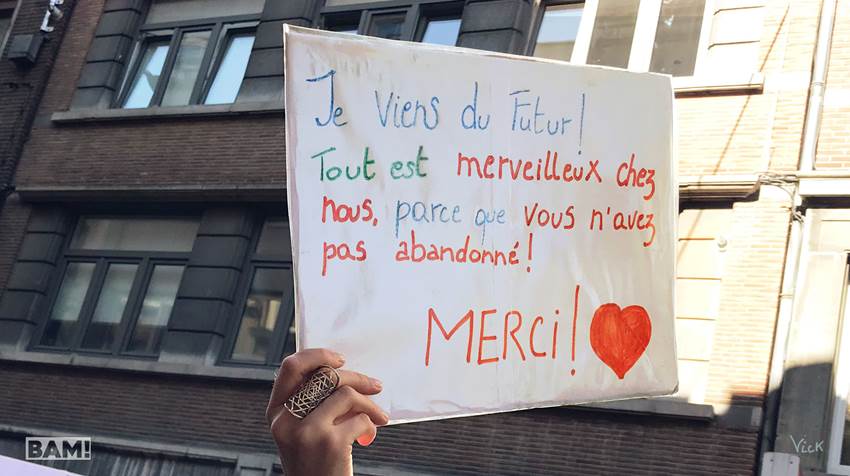 Je viens du Futur!
Tout est merveilleux chez
nous, parce que vous n'avez
pas abandonné!
MERCi!
BAM!
Vick